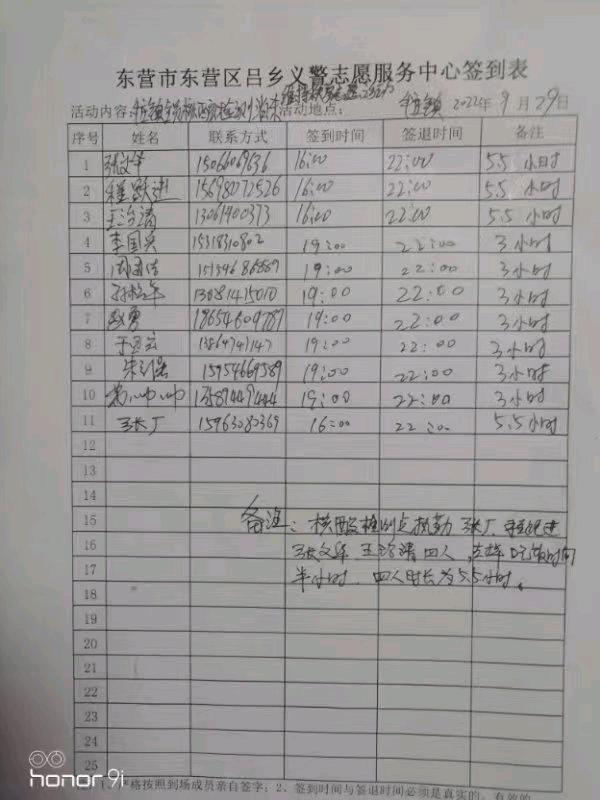 东营市东营区吕乡义警志愿服务中心签到表
活动内容: 全员核酸检测 活动地点: 镇 2022年9月29日
序号 姓名 联系方式 签到时间 签退时间 备注
1 张文华 15066069636 16:00 22:00 5.5小时
2 程跃进 15698072526 16:00 22:00 5.5小时
3 王治清 13061400373 16:00 22:00 5.5小时
4 李国兴 15318310802 19:00 22:00 3小时
5 15154686889 19:00 22:00 3小时
6 13081415010 19:00 22:00 3小时
7 赵勇 18654609787 19:00 22:00 3小时
8 13864741147 19:00 22:00 3小时
9 15954669589 19:00 22:00 3小时
10 19:00 22:00 3小时
11 张广 15963080369 16:00 22:00 5.5小时
12
13
14
15 备注:核酸检测点执勤 张广、程跃进
16 张文华、王治清四人,去掉吃饭时间
17 半小时,四人时长为5.5小时。
18
19
20
21
22
23
24
25
严格按照到场成员亲自签字;2、签到时间与签退时间必须是真实的、有效的
honor 9i